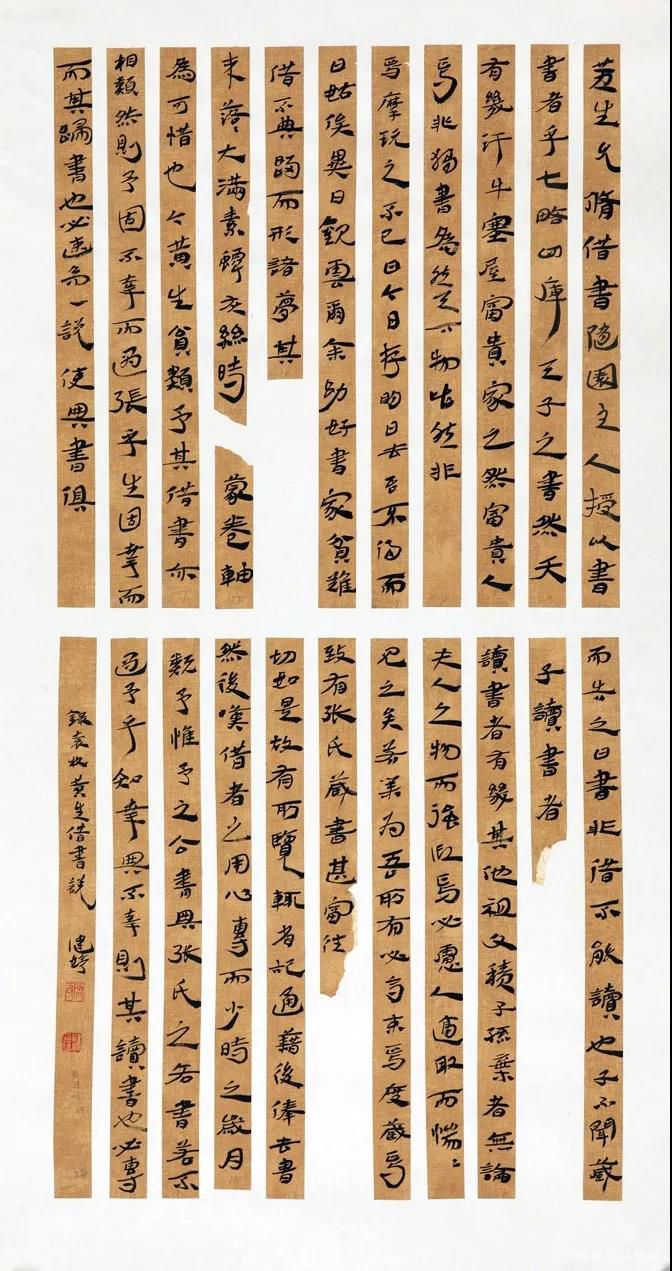 黃生允脩借書隨園主人授以書
而告之曰書非借不能讀也子不聞藏
書者乎七略四庫天子之書然天
子讀書者
有幾汗牛塞屋富貴家之然富貴人
讀書者有幾其他祖父積子孫棄者無論
焉非獨書為然天下物皆然非
夫人之物而強假焉必慮人逼取而惴〻
焉摩玩之不已曰今日存明日去吾不得而
見之矣若業為吾所有必高束焉庋藏焉
曰姑俟異日觀雲爾余幼好書家貧難
致有張氏藏書甚富往
借不與歸而形諸夢其
切如是故有所覽輒省記通籍後俸去書
來落大滿素蟫灰絲時蒙卷軸
然後嘆借者之用心專而少時之歲月
為可惜也今黃生貧類予其借書亦
類予惟予之公書與張氏之吝書若不
相類然則予固不幸而遇張乎生固幸而
遇予乎知幸與不幸則其讀書也必專
而其歸書也必速為一說使與書俱
錄袁枚黃生借書說 建婷